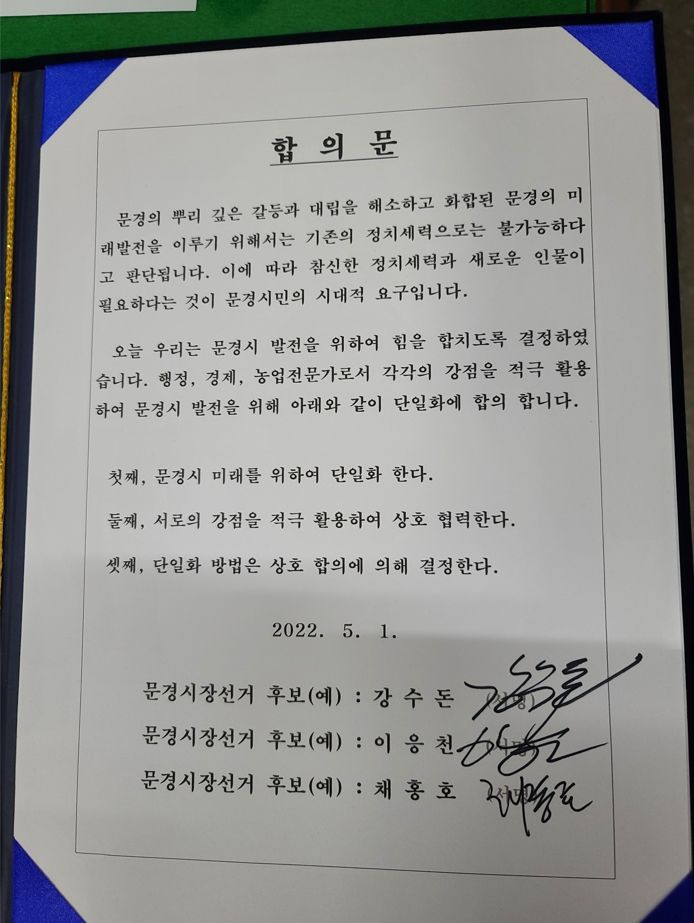 합 의 문
문경의 뿌리 깊은 갈등과 대립을 해소하고 화합된 문경의 미
래발전을 이루기 위해서는 기존의 정치세력으로는 불가능하다
고 판단됩니다. 이에 따라 참신한 정치세력과 새로운 인물이
필요하다는 것이 문경시민의 시대적 요구입니다.
오늘 우리는 문경시 발전을 위하여 힘을 합치도록 결정하였
습니다. 행정, 경제, 농업전문가로서 각각의 강점을 적극 활용
하여 문경시 발전을 위해 아래와 같이 단일화에 합의 합니다.
첫째, 문경시 미래를 위하여 단일화 한다.
둘째, 서로의 강점을 적극 활용하여 상호 협력한다.
셋째, 단일화 방법은 상호 합의에 의해 결정한다.
2022. 5. 1.
문경시장선거 후보(예) : 강 수 돈 (서명)
문경시장선거 후보(예) : 이 응 천 (서명)
문경시장선거 후보(예) : 채 홍 호 (서명)